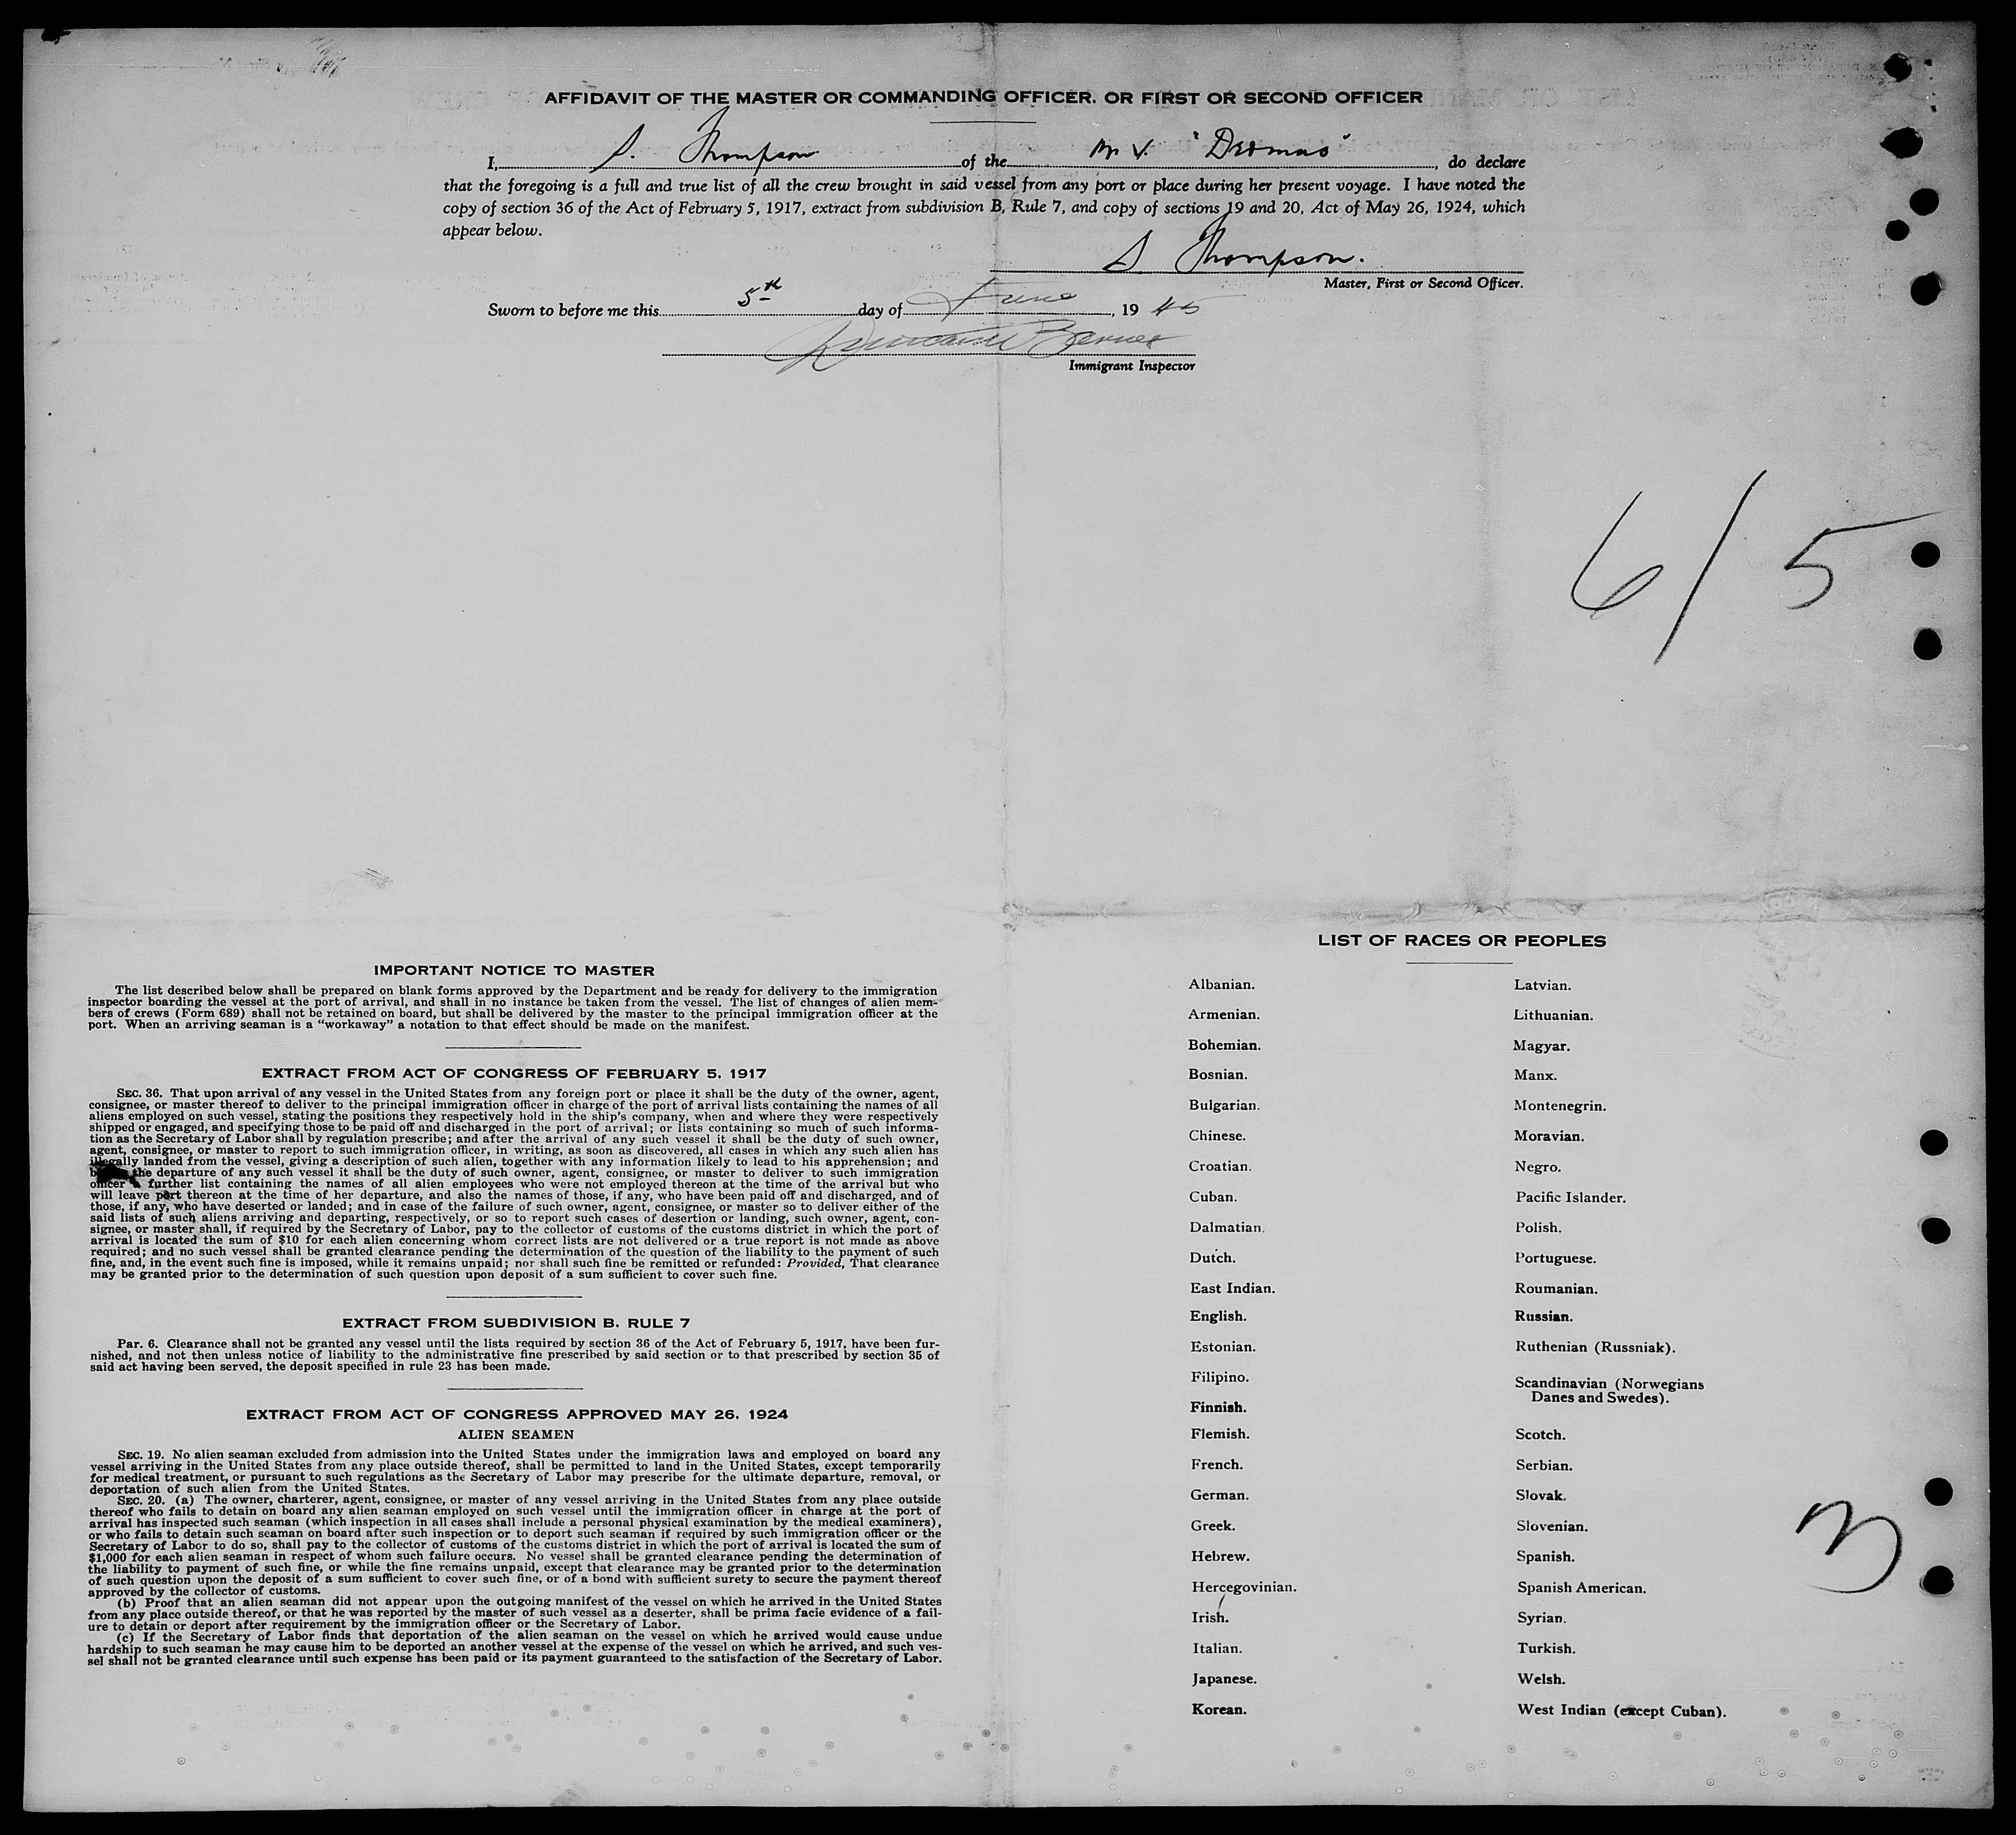 AFFIDAVIT OF THE MASTER OR COMMANDING OFFICER, OR FIRST OR SECOND OFFICER
I, S. Thompson of the M.V. "Dromus", do declare
that the foregoing is a full and true list of all the crew brought in said vessel from any port or place during her present voyage. I have noted the
copy of section 36 of the Act of February 5, 1917, extract from subdivision B, Rule 7, and copy of sections 19 and 20, Act of May 26, 1924, which
appear below.
S Thompson.
Master, First or Second Officer.
Sworn to before me this 5th day of June, 19 45
Immigrant Inspector
6/5
IMPORTANT NOTICE TO MASTER
The list described below shall be prepared on blank forms approved by the Department and be ready for delivery to the immigration
inspector boarding the vessel at the port of arrival, and shall in no instance be taken from the vessel. The list of changes of alien mem-
bers of crews (Form 689) shall not be retained on board, but shall be delivered by the master to the principal immigration officer at the
port. When an arriving seaman is a "workaway" a notation to that effect should be made on the manifest.
EXTRACT FROM ACT OF CONGRESS OF FEBRUARY 5, 1917
SEC. 36. That upon arrival of any vessel in the United States from any foreign port or place it shall be the duty of the owner, agent,
consignee, or master thereof to deliver to the principal immigration officer in charge of the port of arrival lists containing the names of all
aliens employed on such vessel, stating the positions they respectively hold in the ship's company, when and where they were respectively
shipped or engaged, and specifying those to be paid off and discharged in the port of arrival; or lists containing so much of such informa-
tion as the Secretary of Labor shall by regulation prescribe; and after the arrival of any such vessel it shall be the duty of such owner,
agent, consignee, or master to report to such immigration officer, in writing, as soon as discovered, all cases in which any such alien has
illegally landed from the vessel, giving a description of such alien, together with any information likely to lead to his apprehension; and
the departure of any such vessel it shall be the duty of such owner, agent, consignee, or master to deliver to such immigration
officer a further list containing the names of all alien employees who were not employed thereon at the time of the arrival but who
will leave port thereon at the time of her departure, and also the names of those, if any, who have been paid off and discharged, and of
those, if any, who have deserted or landed; and in case of the failure of such owner, agent, consignee, or master so to deliver either of the
said lists of such aliens arriving and departing, respectively, or so to report such cases of desertion or landing, such owner, agent, con-
signee, or master shall, if required by the Secretary of Labor, pay to the collector of customs of the customs district in which the port of
arrival is located the sum of $10 for each alien concerning whom correct lists are not delivered or a true report is not made as above
required; and no such vessel shall be granted clearance pending the determination of the question of the liability to the payment of such
fine, and, in the event such fine is imposed, while it remains unpaid; nor shall such fine be remitted or refunded: Provided, That clearance
may be granted prior to the determination of such question upon deposit of a sum sufficient to cover such fine.
EXTRACT FROM SUBDIVISION B, RULE 7
Par. 6. Clearance shall not be granted any vessel until the lists required by section 36 of the Act of February 5, 1917, have been fur-
nished, and not then unless notice of liability to the administrative fine prescribed by said section or to that prescribed by section 35 of
said act having been served, the deposit specified in rule 23 has been made.
EXTRACT FROM ACT OF CONGRESS APPROVED MAY 26, 1924
ALIEN SEAMEN
SEC. 19. No alien seaman excluded from admission into the United States under the immigration laws and employed on board any
vessel arriving in the United States from any place outside thereof, shall be permitted to land in the United States, except temporarily
for medical treatment, or pursuant to such regulations as the Secretary of Labor may prescribe for the ultimate departure, removal, or
deportation of such alien from the United States.
SEC. 20. (a) The owner, charterer, agent, consignee, or master of any vessel arriving in the United States from any place outside
thereof who fails to detain on board any alien seaman employed on such vessel until the immigration officer in charge at the port of
arrival has inspected such seaman (which inspection in all cases shall include a personal physical examination by the medical examiners),
or who fails to detain such seaman on board after such inspection or to deport such seaman if required by such immigration officer or the
Secretary of Labor to do so, shall pay to the collector of customs of the customs district in which the port of arrival is located the sum of
$1,000 for each alien seaman in respect of whom such failure occurs. No vessel shall be granted clearance pending the determination of
the liability to payment of such fine, or while the fine remains unpaid, except that clearance may be granted prior to the determination
of such question upon the deposit of a sum sufficient to cover such fine, or of a bond with sufficient surety to secure the payment thereof
approved by the collector of customs.
(b) Proof that an alien seaman did not appear upon the outgoing manifest of the vessel on which he arrived in the United States
from any place outside thereof, or that he was reported by the master of such vessel as a deserter, shall be prima facie evidence of a fail-
ure to detain or deport after requirement by the immigration officer or the Secretary of Labor.
(c) If the Secretary of Labor finds that deportation of the alien seaman on the vessel on which he arrived would cause undue
hardship to such seaman he may cause him to be deported an another vessel at the expense of the vessel on which he arrived, and such ves-
sel shall not be granted clearance until such expense has been paid or its payment guaranteed to the satisfaction of the Secretary of Labor.
LIST OF RACES OR PEOPLES
Albanian.
Armenian.
Bohemian.
Bosnian.
Bulgarian.
Chinese.
Croatian.
Cuban.
Dalmatian.
Dutch.
East Indian.
English.
Estonian.
Filipino.
Finnish.
Flemish.
French.
German.
Greek.
Hebrew.
Hercegovinian.
Irish.
Italian.
Japanese.
Korean.
Latvian.
Lithuanian.
Magyar.
Manx.
Montenegrin.
Moravian.
Negro.
Pacific Islander.
Polish.
Portuguese.
Roumanian.
Russian.
Ruthenian (Russniak).
Scandinavian (Norwegians
Danes and Swedes).
Scotch.
Serbian.
Slovak.
Slovenian.
Spanish.
Spanish American.
Syrian.
Turkish.
Welsh.
West Indian (except Cuban).
3